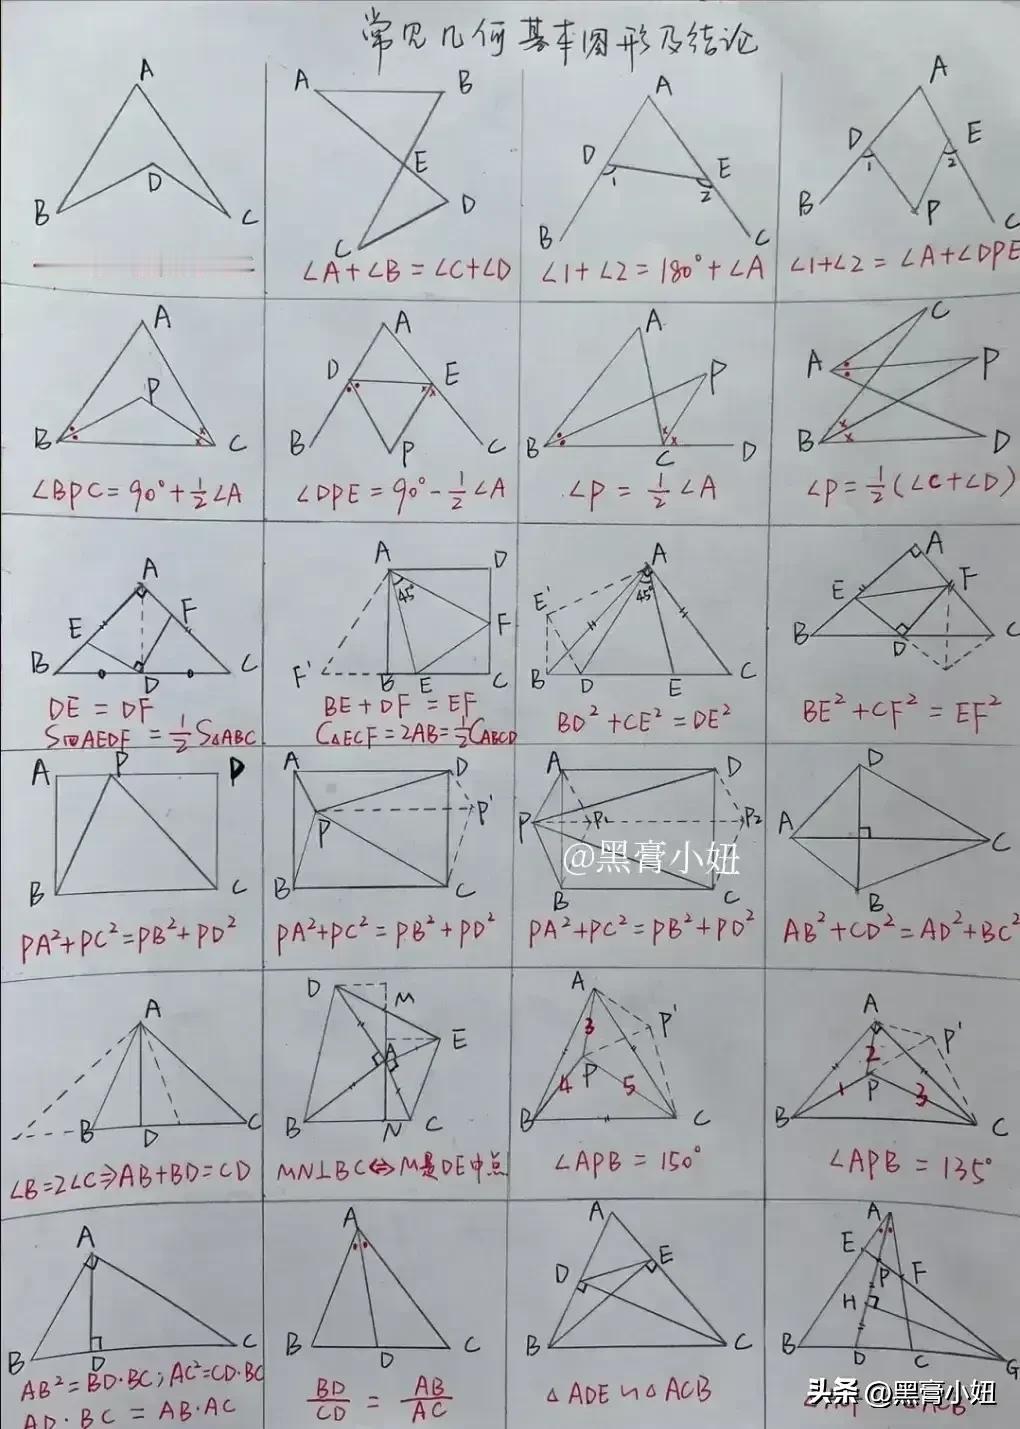 常见几何基本图形及结论
A
B
D
C
A
B
E
D
C
∠A+∠B=∠C+∠D
A
D
1
E
2
B
C
∠1+∠2=180°+∠A
A
D
1
E
2
B
P
C
∠1+∠2=∠A+∠DPE
A
P
B
C
∠BPC=90°+1/2∠A
A
D
E
B
P
C
∠DPE=90°-1/2∠A
A
P
B
C
D
∠P=1/2∠A
C
A
P
B
D
∠P=1/2(∠C+∠D)
A
E
F
B
D
C
DE=DF
S四AEDF=1/2S△ABC
A
D
45°
F
F'
B
E
C
BE+DF=EF
C△ECF=2AB=1/2CABCD
A
E'
45°
B
D
E
C
BD²+CE²=DE²
A
E
F
B
D
C
BE²+CF²=EF²
A
P
D
B
C
PA²+PC²=PB²+PD²
A
D
P
P'
B
C
PA²+PC²=PB²+PD²
A
D
P
P₁
P₂
@黑膏小妞
B
C
PA²+PC²=PB²+PD²
D
A
C
B
AB²+CD²=AD²+BC²
A
B
D
C
∠B=2∠C⇒AB+BD=CD
D
M
E
A
B
N
C
MN⊥BC⇔M是DE中点
A
3
P'
P
4
5
B
C
∠APB=150°
A
2
P'
1
P
3
B
C
∠APB=135°
A
B
D
C
AB²=BD·BC;AC²=CD·BC
AD·BC=AB·AC
A
B
D
C
BD/CD=AB/AC
A
D
E
B
C
△ADE∽△ACB
A
E
P
F
H
B
D
C
G
头条 @黑膏小妞